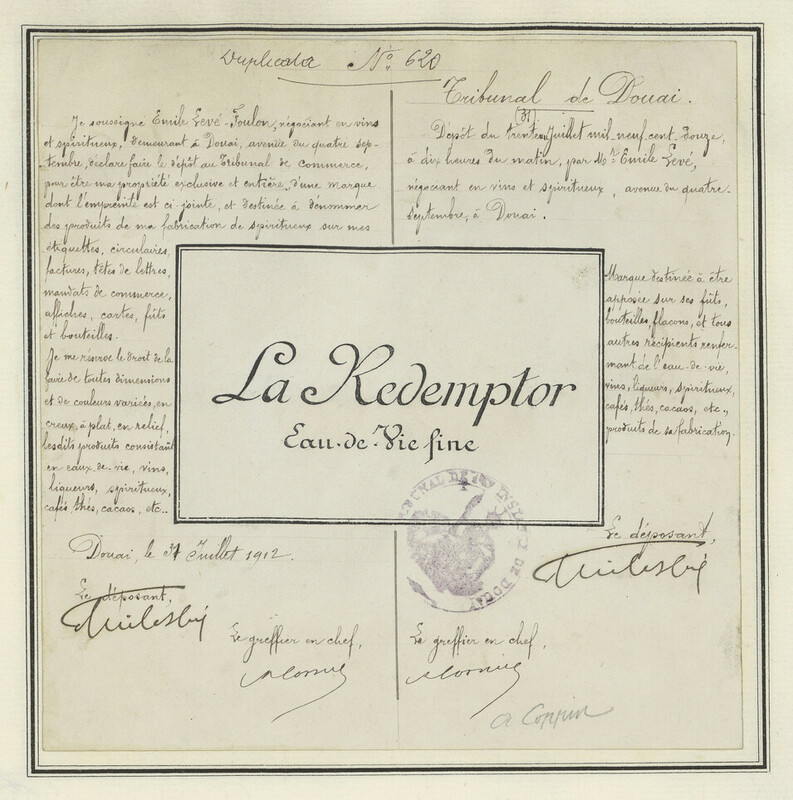 Duplicata Nº 620
Je soussigné Emile Levé-Toulon, négociant en vins
et spiritueux, demeurant à Douai, avenue du quatre sep-
tembre, déclare faire le dépôt au Tribunal de commerce,
pour être ma propriété exclusive et entière, d'une marque
dont l'empreinte est ci-jointe, et destinée à dénommer
des produits de ma fabrication de spiritueux sur mes
étiquettes, circulaires,
factures, têtes de lettres,
mandats de commerce,
affiches, cartes, fûts
et bouteilles.
Je me réserve le droit de la
faire de toutes dimensions
et de couleurs variées, en
creux, à plat, en relief,
lesdits produits consistant
en eaux-de-vie, vins,
liqueurs, spiritueux,
cafés, thés, cacaos, etc..
Douai, le 31 Juillet 1912.
Le déposant,
Le greffier en chef,
La Redemptor
Eau-de-Vie fine
Tribunal de Douai.
31
Dépôt du trente Juillet mil neuf cent douze,
à dix heures du matin, par Mr Emile Levé,
négociant en vins et spiritueux, avenue du quatre-
septembre, à Douai.
Marque destinée à être
apposée sur ses fûts,
bouteilles, flacons, et tous
autres récipients renfer-
mant de l'eau-de-vie,
vins, liqueurs, spiritueux,
cafés, thés, cacaos, etc..,
produits de sa fabrication.
Le déposant,
Le greffier en chef,
a Coppin